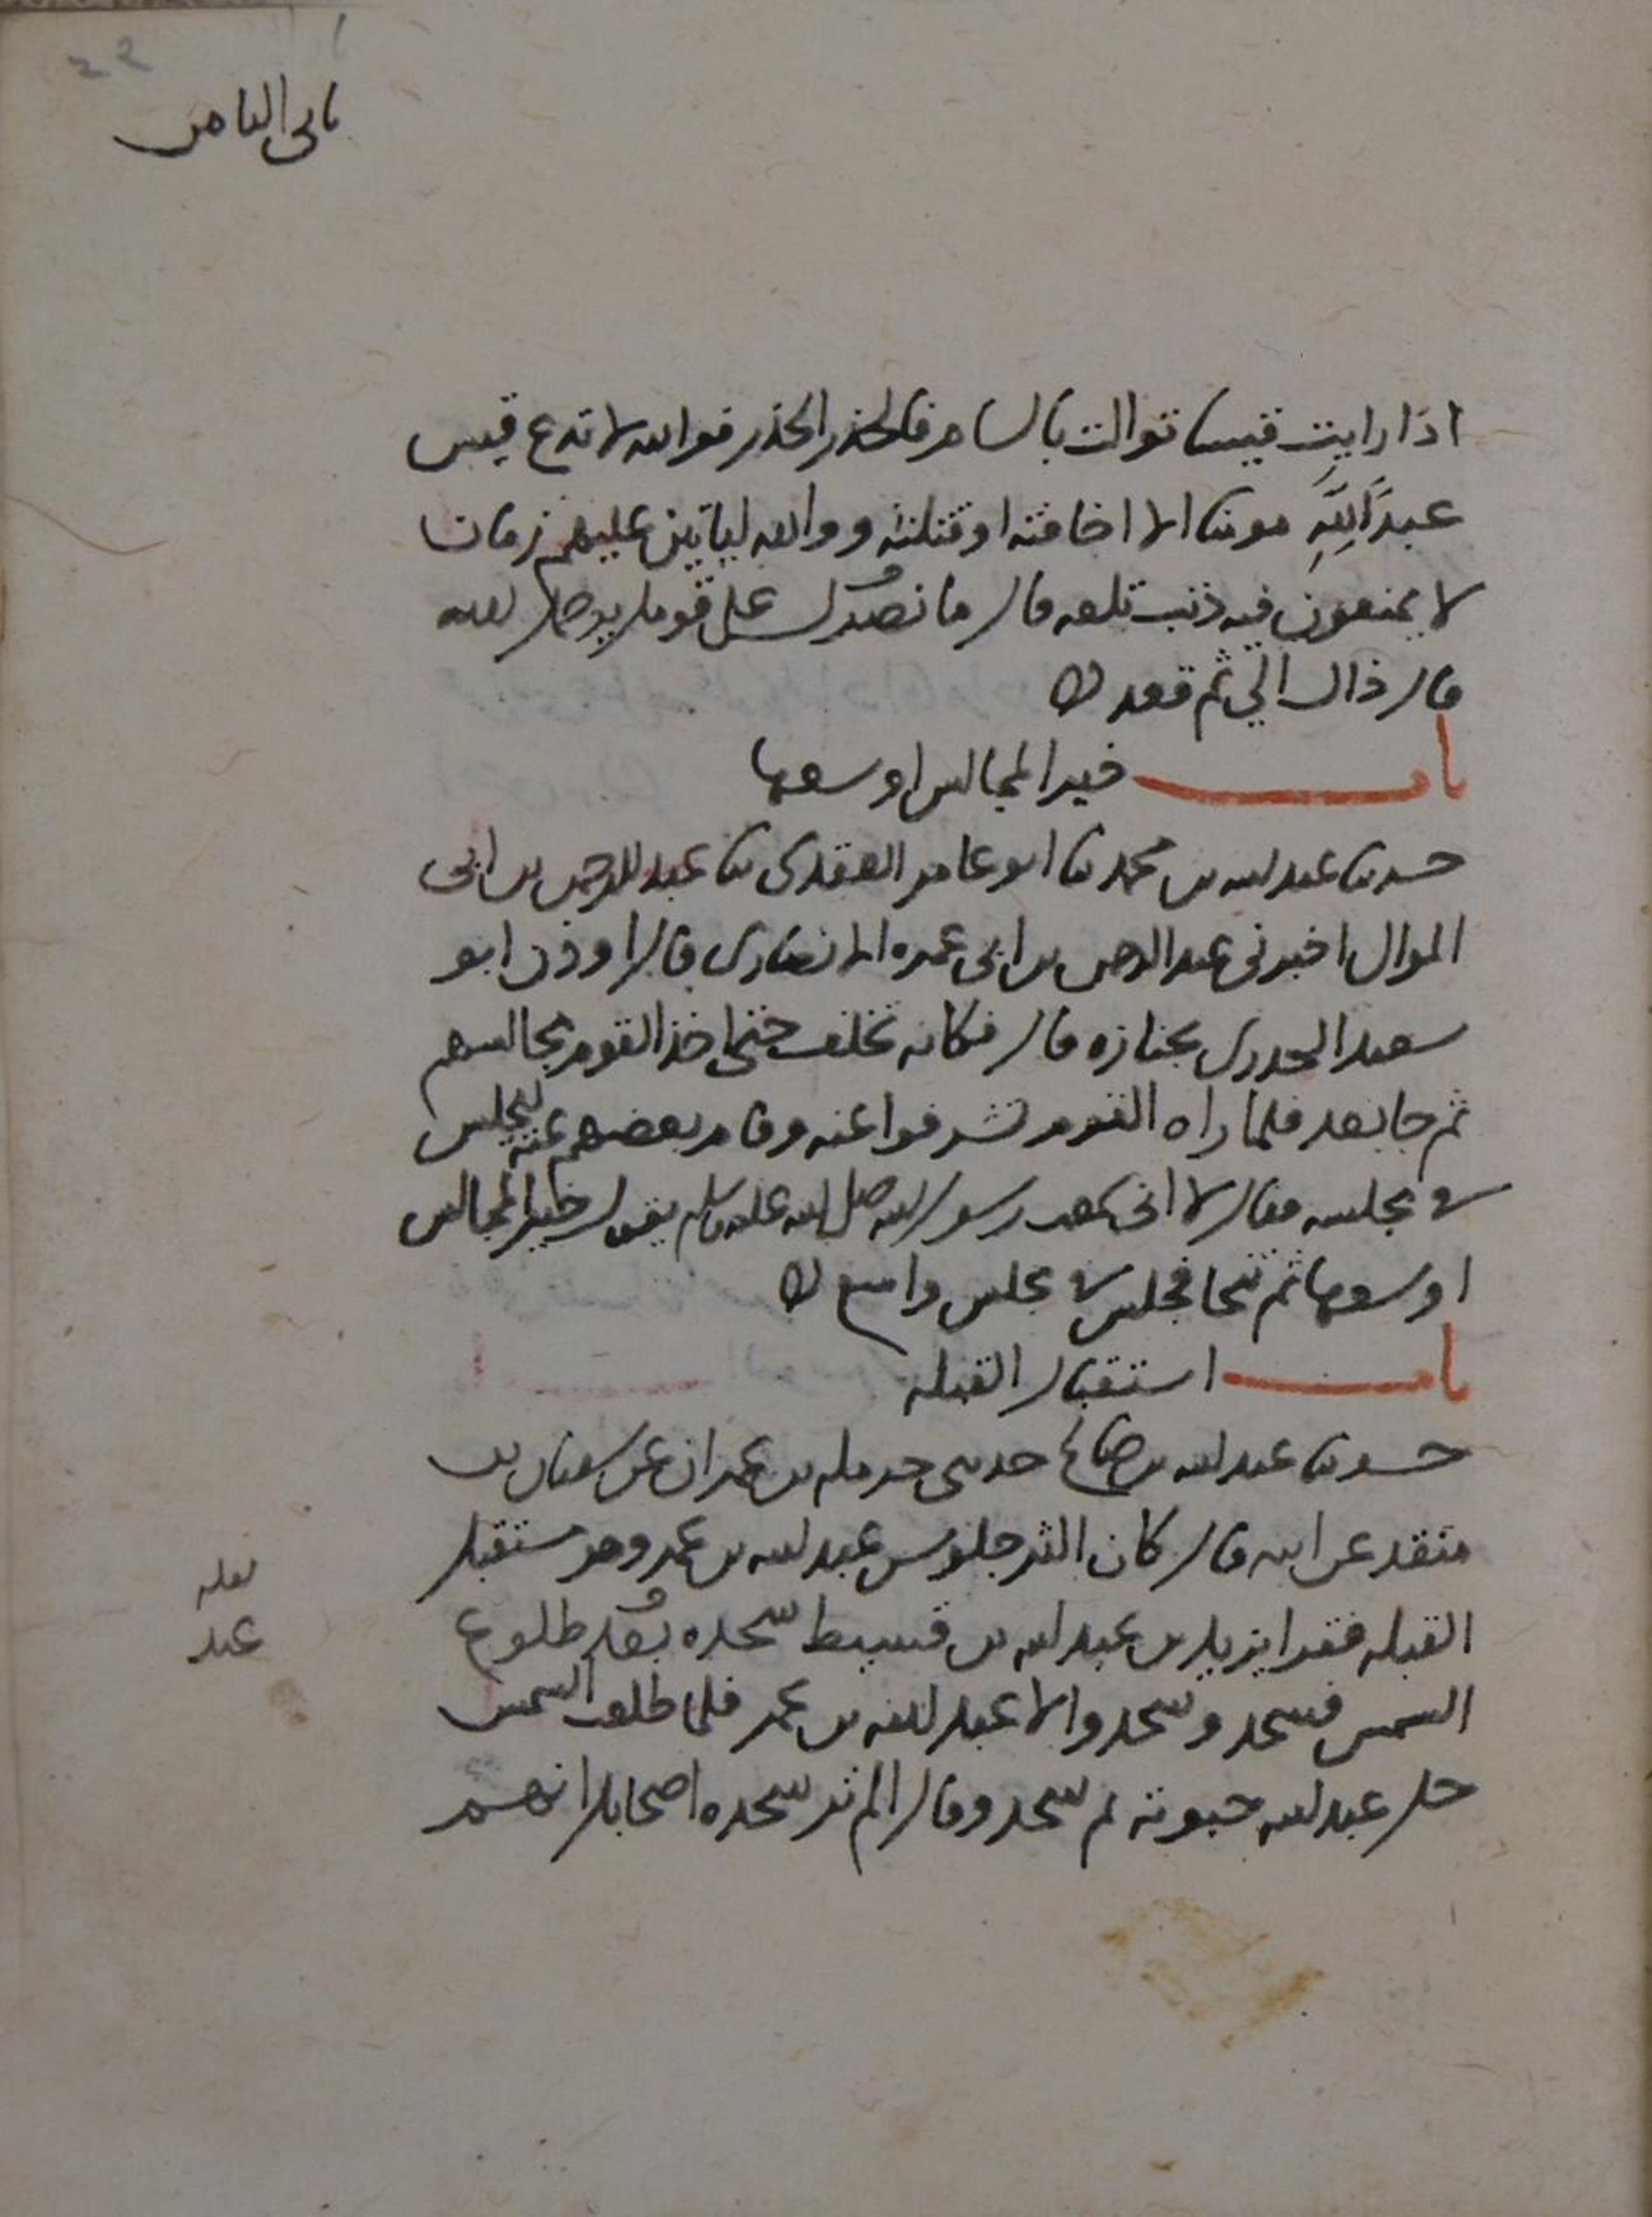 ثاني الثامن
اذا رايت قيسا توالت بالشام فالحذر الحذر فوالله لا تدع قيس
عبدا لله مومنا الا اخافته او قتلته ووالله لياتين عليهم زمان
لا يمنعون فيه ذنب تلعه قال ما نصرك على قومك يرحمك الله
قال ذاك الي ثم قعد
باب خير المجالس اوسعها
حدثنا عبد الله بن محمد ثنا ابو عامر العقدي ثنا عبد الرحمن بن ابي
الموال اخبرني عبد الرحمن بن ابي عمره الانصاري قال اوذن ابو
سعيد الخدري بجنازه قال فكانه تخلف حتى اخذ القوم مجالسهم
ثم جا بعد فلما راه القوم تشرفوا عنه وقام بعضهم عنه ليجلس
في مجلسه فقال لا اني سمعت رسول الله صلى الله عليه وسلم يقول خير المجالس
اوسعها ثم تنحا فجلس في مجلس واسع
باب استقبال القبله
حدثنا عبد الله بن صالح حدثني حرمله بن عمران عن سفيان بن
منقد عن ابيه قال كان اكثر جلوس عبد الله بن عمر وهو مستقبل
القبله فقرا يزيد بن عبد الله بن قسيط سجده بعد طلوع
الشمس فسجد وسجدوا الا عبد الله بن عمر فلما طلعت الشمس
حل عبد الله حبوته ثم سجد وقال الم تر سجده اصحابك انهم
لعله
عند